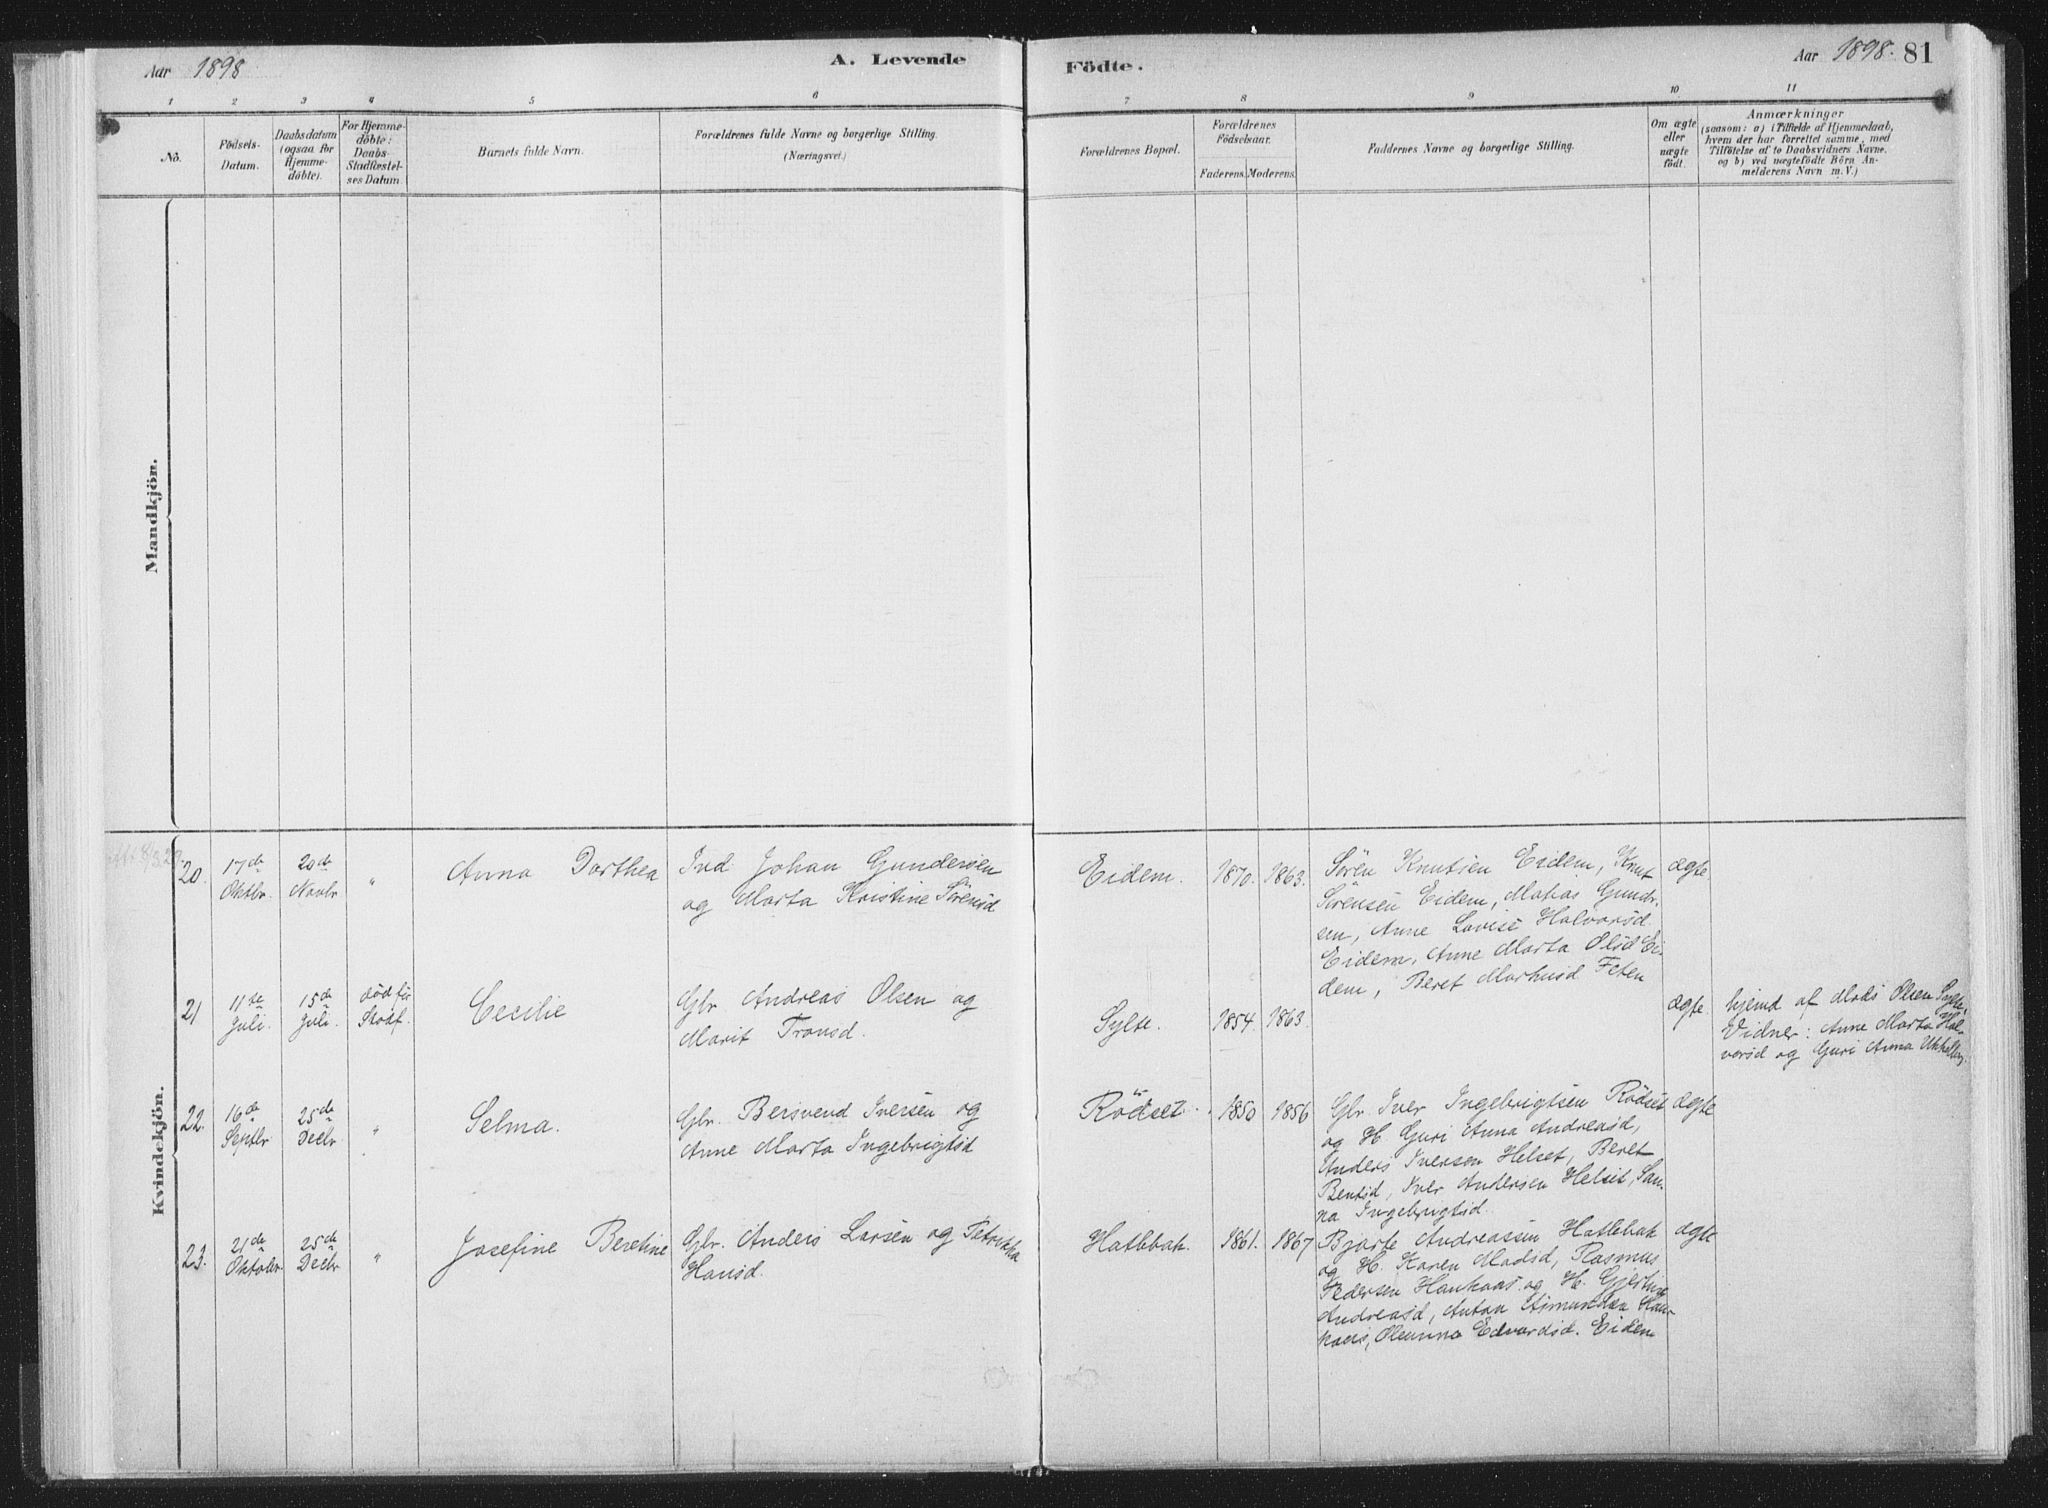 Aar 1898
A. Levende
Födte.
Aar 1898. 81
1 2 3 4 5 6 7 8 9 10 11
No.
Födsels-
Datum.
Daabsdatum
(ogsaa for
Hjemme-
döbte).
For Hjemme-
döbte:
Daabs-
Stadfæstel-
ses Datum.
Barnets fulde Navn.
Forældrenes fulde Navne og borgerlige Stilling.
(Næringsvei.)
Forældrenes Bopæl.
Forældrenes
Födselsaar.
Faderens. Moderens.
Faddernes Navne og borgerlige Stilling.
Om ægte
eller
uægte
födt.
Anmærkninger
(saasom: a) i Tilfælde af Hjemmedaab,
hvem der har forrettet samme, med
Tilföielse af to Daabsvidners Navne,
og b) ved uægtefödte Börn An-
melderens Navn m. V.)
Mandkjön.
Kvindekjön.
20.
17de
Oktbr.
20de
Novbr
"
Anna Dorthea
Ind Johan Gundersen
og Marta Kristine Sörensd
Eidem.
1870. 1863.
Sören Knutsen Eidem, Knut
Sörensen Eidem, Matias Gunder-
sen, Anne Lovise Halvorsd
Eidem, Anne Marta Olsd Ei-
dem, Beret Markusd Feten
ægte
21
11te
Juli.
15de
Juli.
död før
Stadf.
Cecilie
Gbr Andreas Olsen og
Marit Tronsd.
Sylte.
1854. 1863.
ægte
hjemd af Mads Olsen Sylte.
Vidner: Anne Marta Hal-
vorsd og Guri Anna
22.
16de
Septbr
25de
Decbr
"
Selma.
Gbr. Bersvend Iversen og
Anne Marta Ingebrigtsd
Rödset.
1850 1856
Gbr. Iver Ingebrigtsen Rödset
og H. Guri Anna Andreasd,
Anders Iversen Helset, Beret
Bentsd, Iver Andersen Helset, San-
na Ingebrigtsd.
ægte
23.
21de
Oktober.
25de
Decbr
"
Josefine Beretine
Gbr. Anders Larsen og Petrikka
Hansd.
Hatlebak.
1861. 1867
Bjarte Andreassen Hatlebak
og H. Karen Madsd, Rasmus
Pedersen Haukaas og H. Gjertine
Andreasd, Anton Asmundsen Hau-
kaas, Oleanna Edvardsd. Eidem
ægte